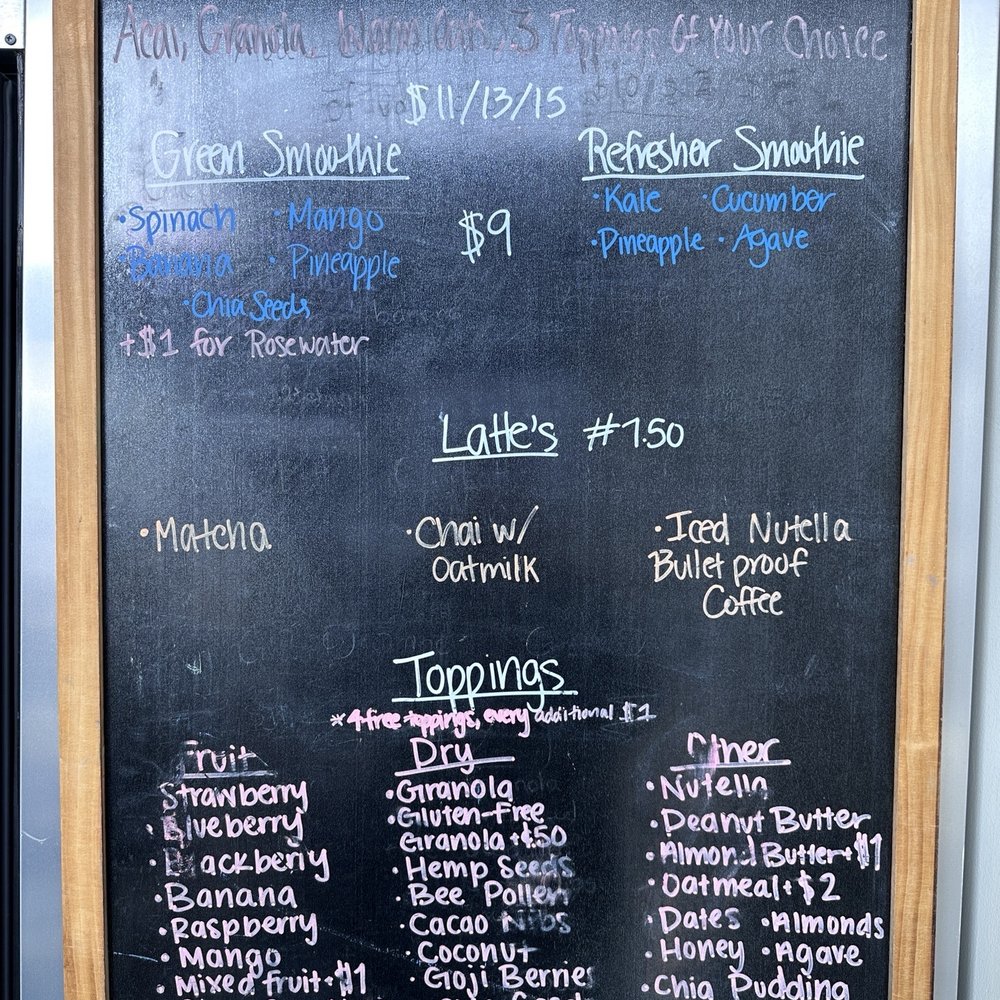 Acai, Granola, Warm Oats, 3 Toppings Of Your Choice
$11/13/15
Green Smoothie
• Spinach • Mango
• Banana • Pineapple
• Chia Seeds
+$1 for Rosewater
$9
Refresher Smoothie
• Kale • Cucumber
• Pineapple • Agave
Latte's #7.50
• Matcha
• Chai w/
Oatmilk
• Iced Nutella
Bullet proof
Coffee
Toppings
*4 free toppings, every additional $1
Fruit
Strawberry
• Blueberry
• Blackberry
• Banana
• Raspberry
• Mango
• Mixed fruit + $1
Dry
• Granola
• Gluten-Free
Granola +$.50
• Hemp Seeds
• Bee Pollen
• Cacao Nibs
• Coconut
• Goji Berries
Other
• Nutella
• Peanut Butter
• Almond Butter + $1
• Oatmeal + $2
• Dates • Almonds
• Honey • Agave
• Chia Pudding